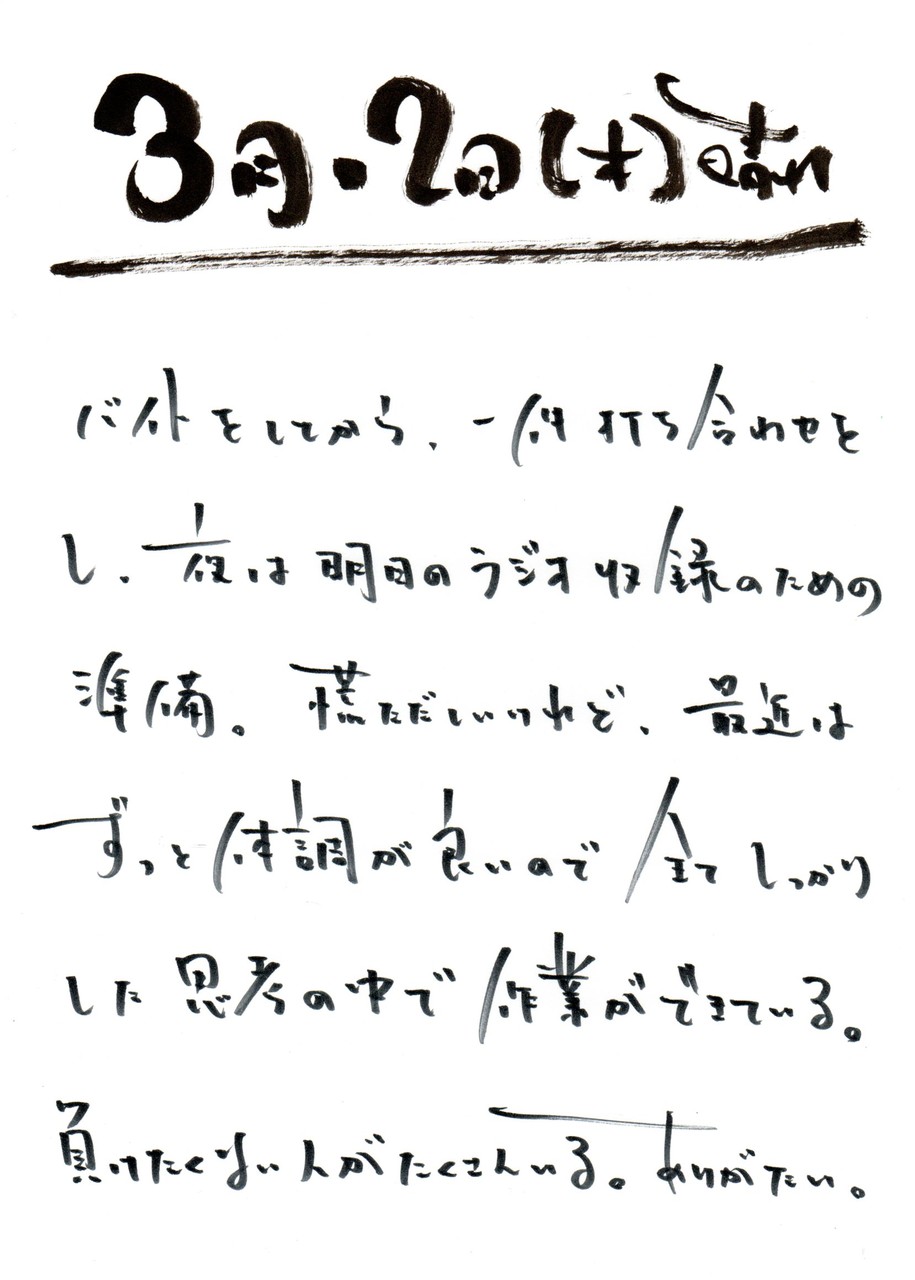 3月・2日(木)晴れ
バイトをしてから、一件打ち合わせを
し、夜は明日のラジオ収録のための
準備。慌ただしいけれど、最近は
ずっと体調が良いので全てしっかり
した思考の中で作業ができている。
負けたくない人がたくさんいる。ありがたい。